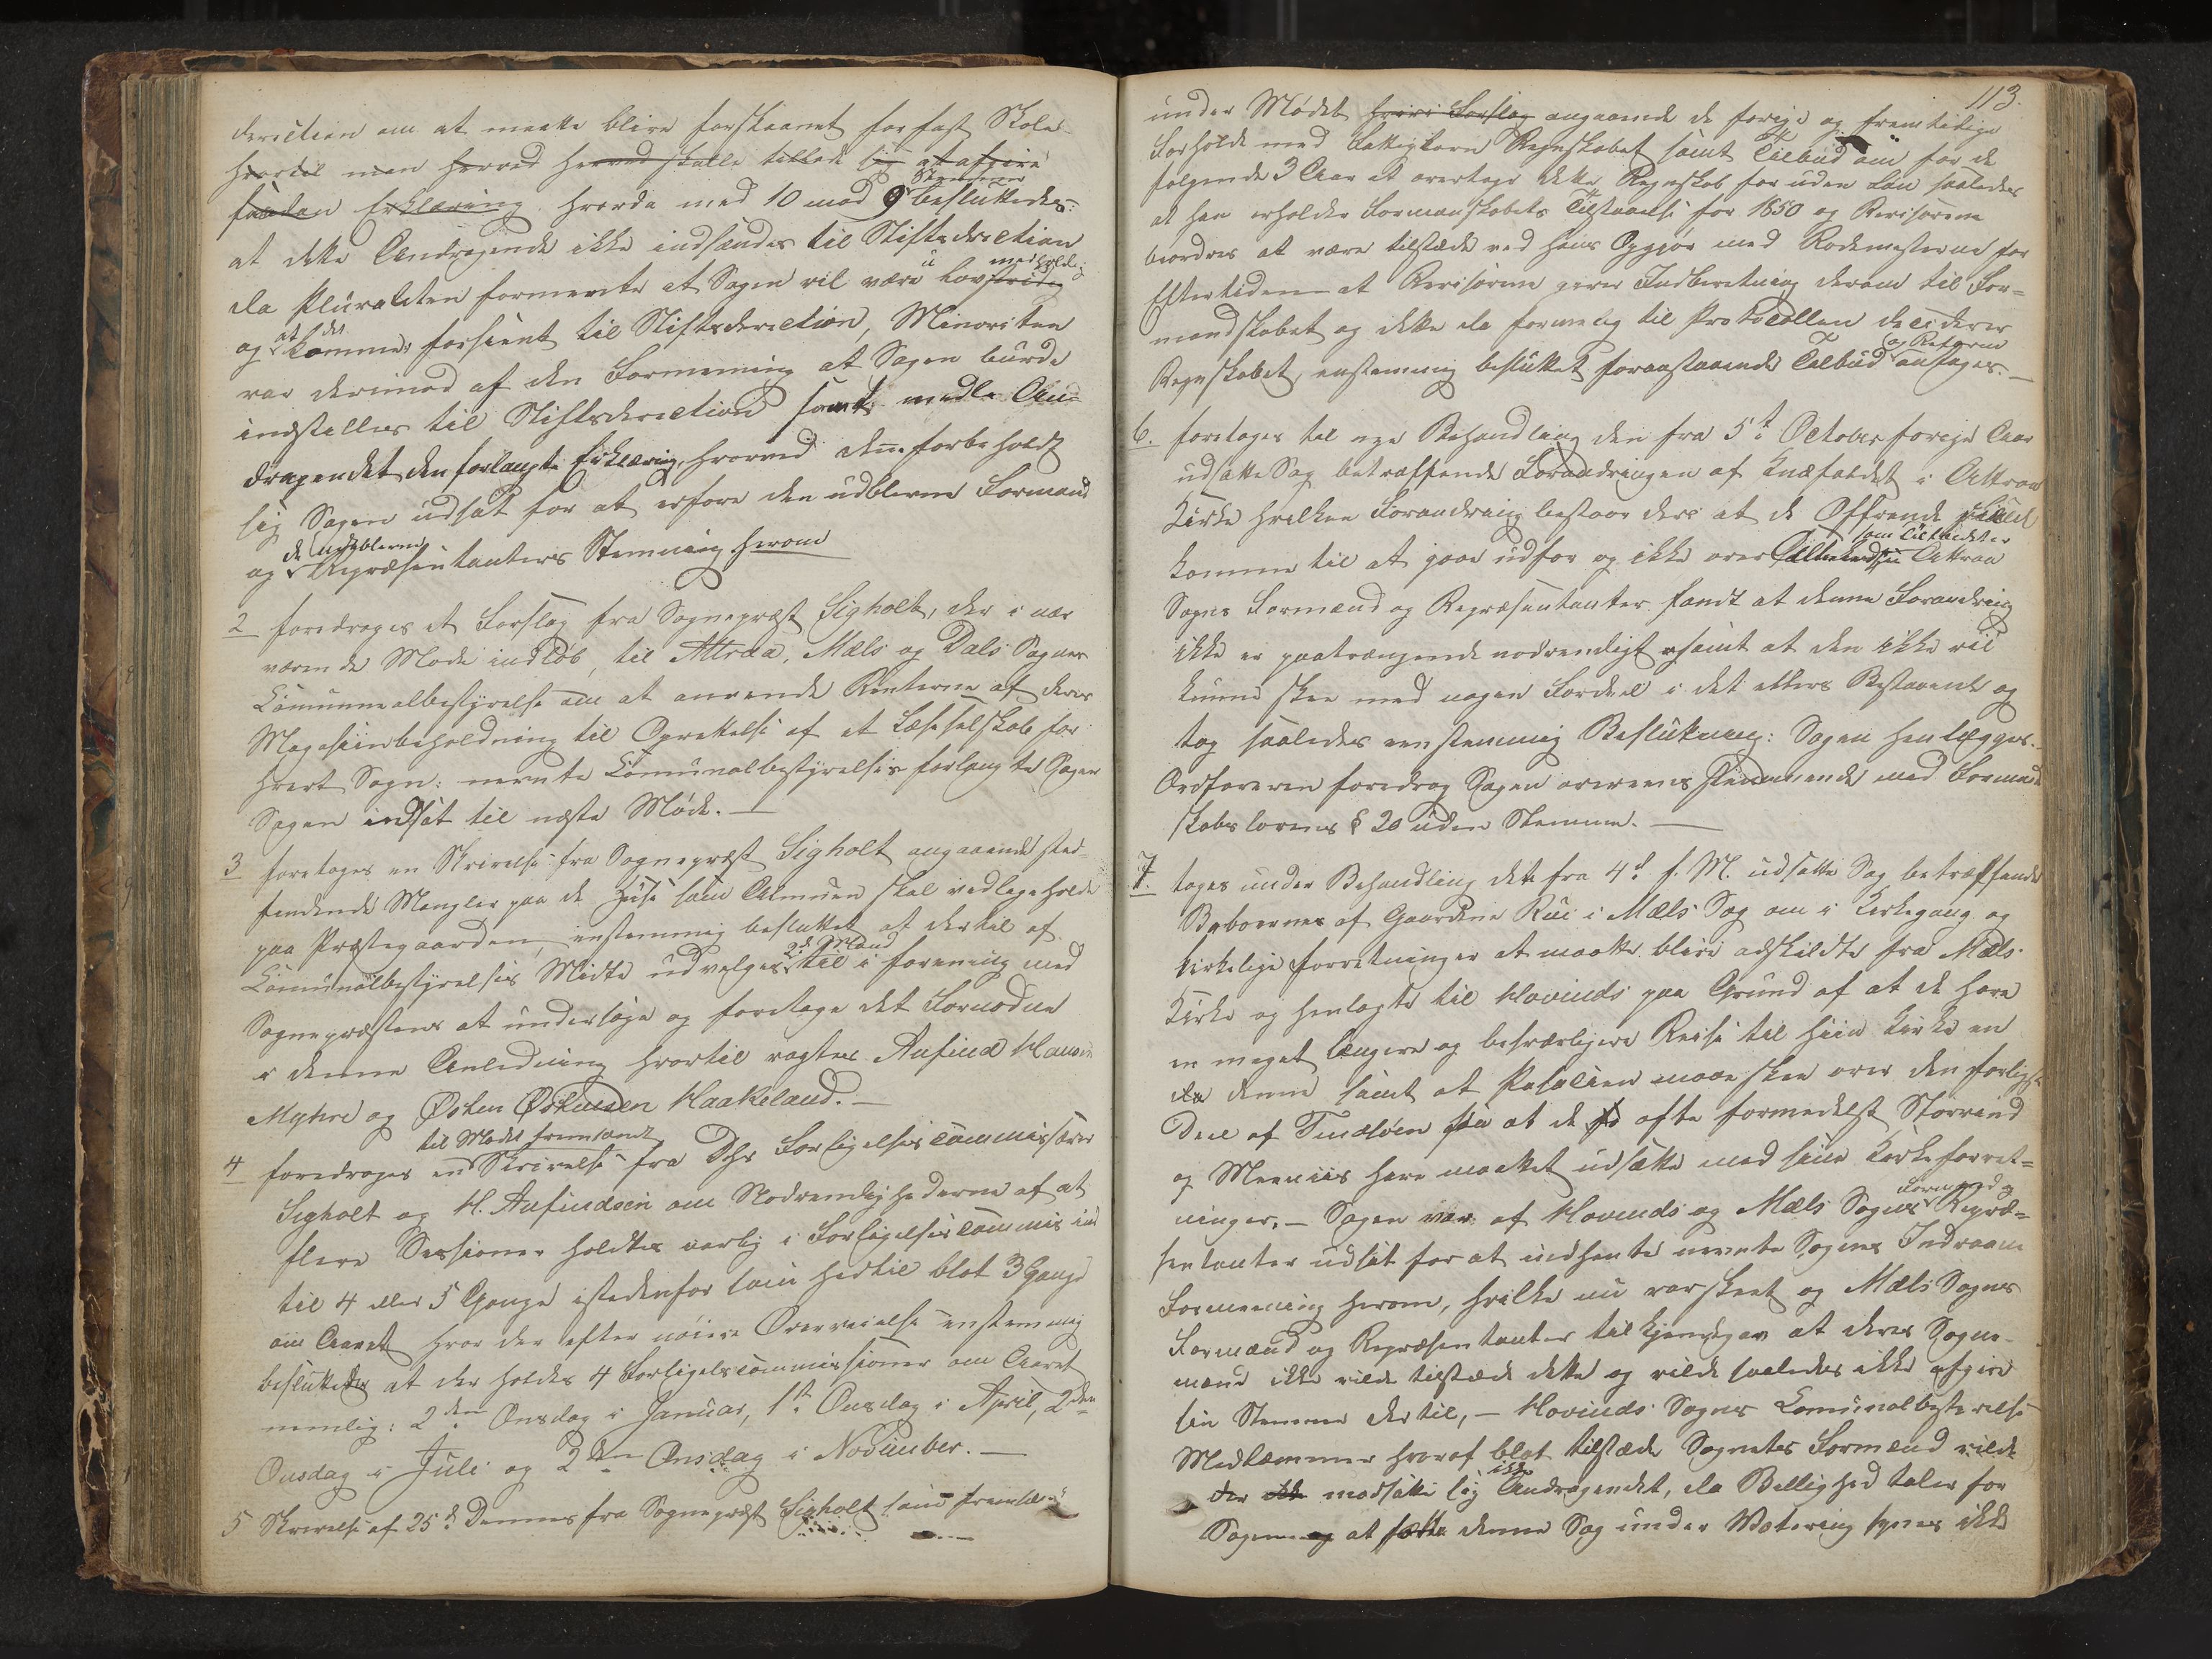 derection om at maatte blive forskaanet for fast Skole
hvortil man herved herved skulle tillade sig at afgive
saadan Erklæring hvorda med 10 mod 9 Stemmer besluttedes:
at dette Andragende ikke indsendes til Stiftsderection
da Pluraliten formente at Sagen vil være u lovmedholdig
og at det kommer forsient til Stiftsderection, Minoriten
var derimod af den Formening at Sagen burde
indstilles til Stiftsderection samt medla An=
dragendet den forlangte Erklæring, hvorved den forbeholdt
sig Sagen udsat for at erfare den udblevne Formand
og de udeblevne Repræsentanters Stemning herom
2 foredroges et Forslag fra Sognepræst Sigholt, der i nær
værende Møde indløb, til Attraa, Mæls og Dals Sognes
Communealbestyrelse om at anvende Renterne af deres
Magasinbeholdning til Oprettelse af et Læseselskab for
hvert Sogn: nevnte Comunalbestyrelser forlangte Sagen
Sagen indsat til næste Møde. —
3 foretoges en Skrivelse fra Sognepræst Sigholt angaaende sted=
findende Mangler paa de Huse som Almuen skal vedlegeholde
paa Præstegaarden, enstemmig besluttet at dertil af
Comunalbestyrelses Midte udvelges 2de Mænd til i forening med
Sognepræsten at undersøge og foretage det Fornødne
i denne Anledning hvortil valgtes Anfind Hansen
Myhre og Østen Østensen Haakeland. —
4 foredroges en til Mødet fremsendt Skrivelse fra DHr Forligelsescommissærer
Sigholt og H. Anfindsen om Nødvendighederne af at
flere Sessioner holdtes aarlig i Forligelsescommis ind
til 4 eller 5 Gange istedenfor som hertil blot 3 Gange
om Aaret hvor der efter nøiere Overveielse enstemmig
besluttedes at der holdes 4 Forligelscommissioner om Aaret
nemlig: 2den Onsdag i Januar, 1ste Onsdag i April, 2den
Onsdag i Juli og 2den Onsdag i November. —
5 Skrivelse af 25de Dennes fra Sognepræst Sigholt som fremsæ
113.
under Mødet hvori Forslag angaaende de forige og fremtidige
Forholde med Fattigkorn Regnskabet samt Tilbud om for de
følgende 3 Aar at overtage dette Regnskab for uden Løn saaledes
at han erholder Formandskabets Tilstaaelse for 1850 og Revisorene
beordres at være tilstæde ved hans Opgjør med Rodemesterne for
Eftertiden at Revisorene giver Indberetning derom til For=
mandskabet og dette da formelig til Protocollen deciderer
Regnskabet, enstemmig besluttet foranstaaende Tilbud og Reform antages. —
6. foretages til nye Behandling den fra 5te October forige Aar
udsatte Sag betræffende Forandringen af Knæfaldet i Attraa
Kirke hvilken Forandring bestaar deri at de Offrende skulde
komme til at gaae udfor og ikke over som Attraa
Sogns Formænd og Repræsentanter fandt at denne Forandring
ikke er paatrængende nødvendigt samt at den ikke vil
kunne skee med nogen Fordeel i det ellers Bestaaende og
tog saaledes eenstemmig Beslutning: Sagen henlægges.
Ordføreren foredrog Sagen overeensstemmende med Formand
skabslovens § 20 uden Stemme. —
7. toges under Behandling det fra 4de f. M. udsatte Sag betræffende
Beboernes af Gaardene Rue i Mæls Sog om i Kirkegang og
kirkelige forretninger at maatte blive adskildte fra Mæls
Kirke og henlagte til Hovinds paa Grund af at de have
en meget længere og besværligere Reise til hiin Kirke en
denne samt at Passasien maae skee over den farligste
Deel af Tindsøen saa at de ofte formedelst Storvind
og Meeniis have maattet udsætte med sine Kirkeforret=
ninger. — Sagen var af Hovinds og Mæls Sognes Formænd og Repræ=
sentanter udsat for at indhente nevnte Sognes Indvaan
Formeening herom, hvilke nu var skeet og Mæls Sognes
Formænd og Repræsentanter tilkjendegav at deres Sogne
mænd ikke vilde tilstæde dette og vilde saaledes ikke afgive
sin Stemme dertil, — Hovinds Sognes Comunalbestyrelse
Medlemmer hvoraf blot tilstæde Sognets Formænd vilde
der ikke modsætte sig Andragendet, da Billighed taler for
Sagen at sætte denne Sag under Votering synes ikke